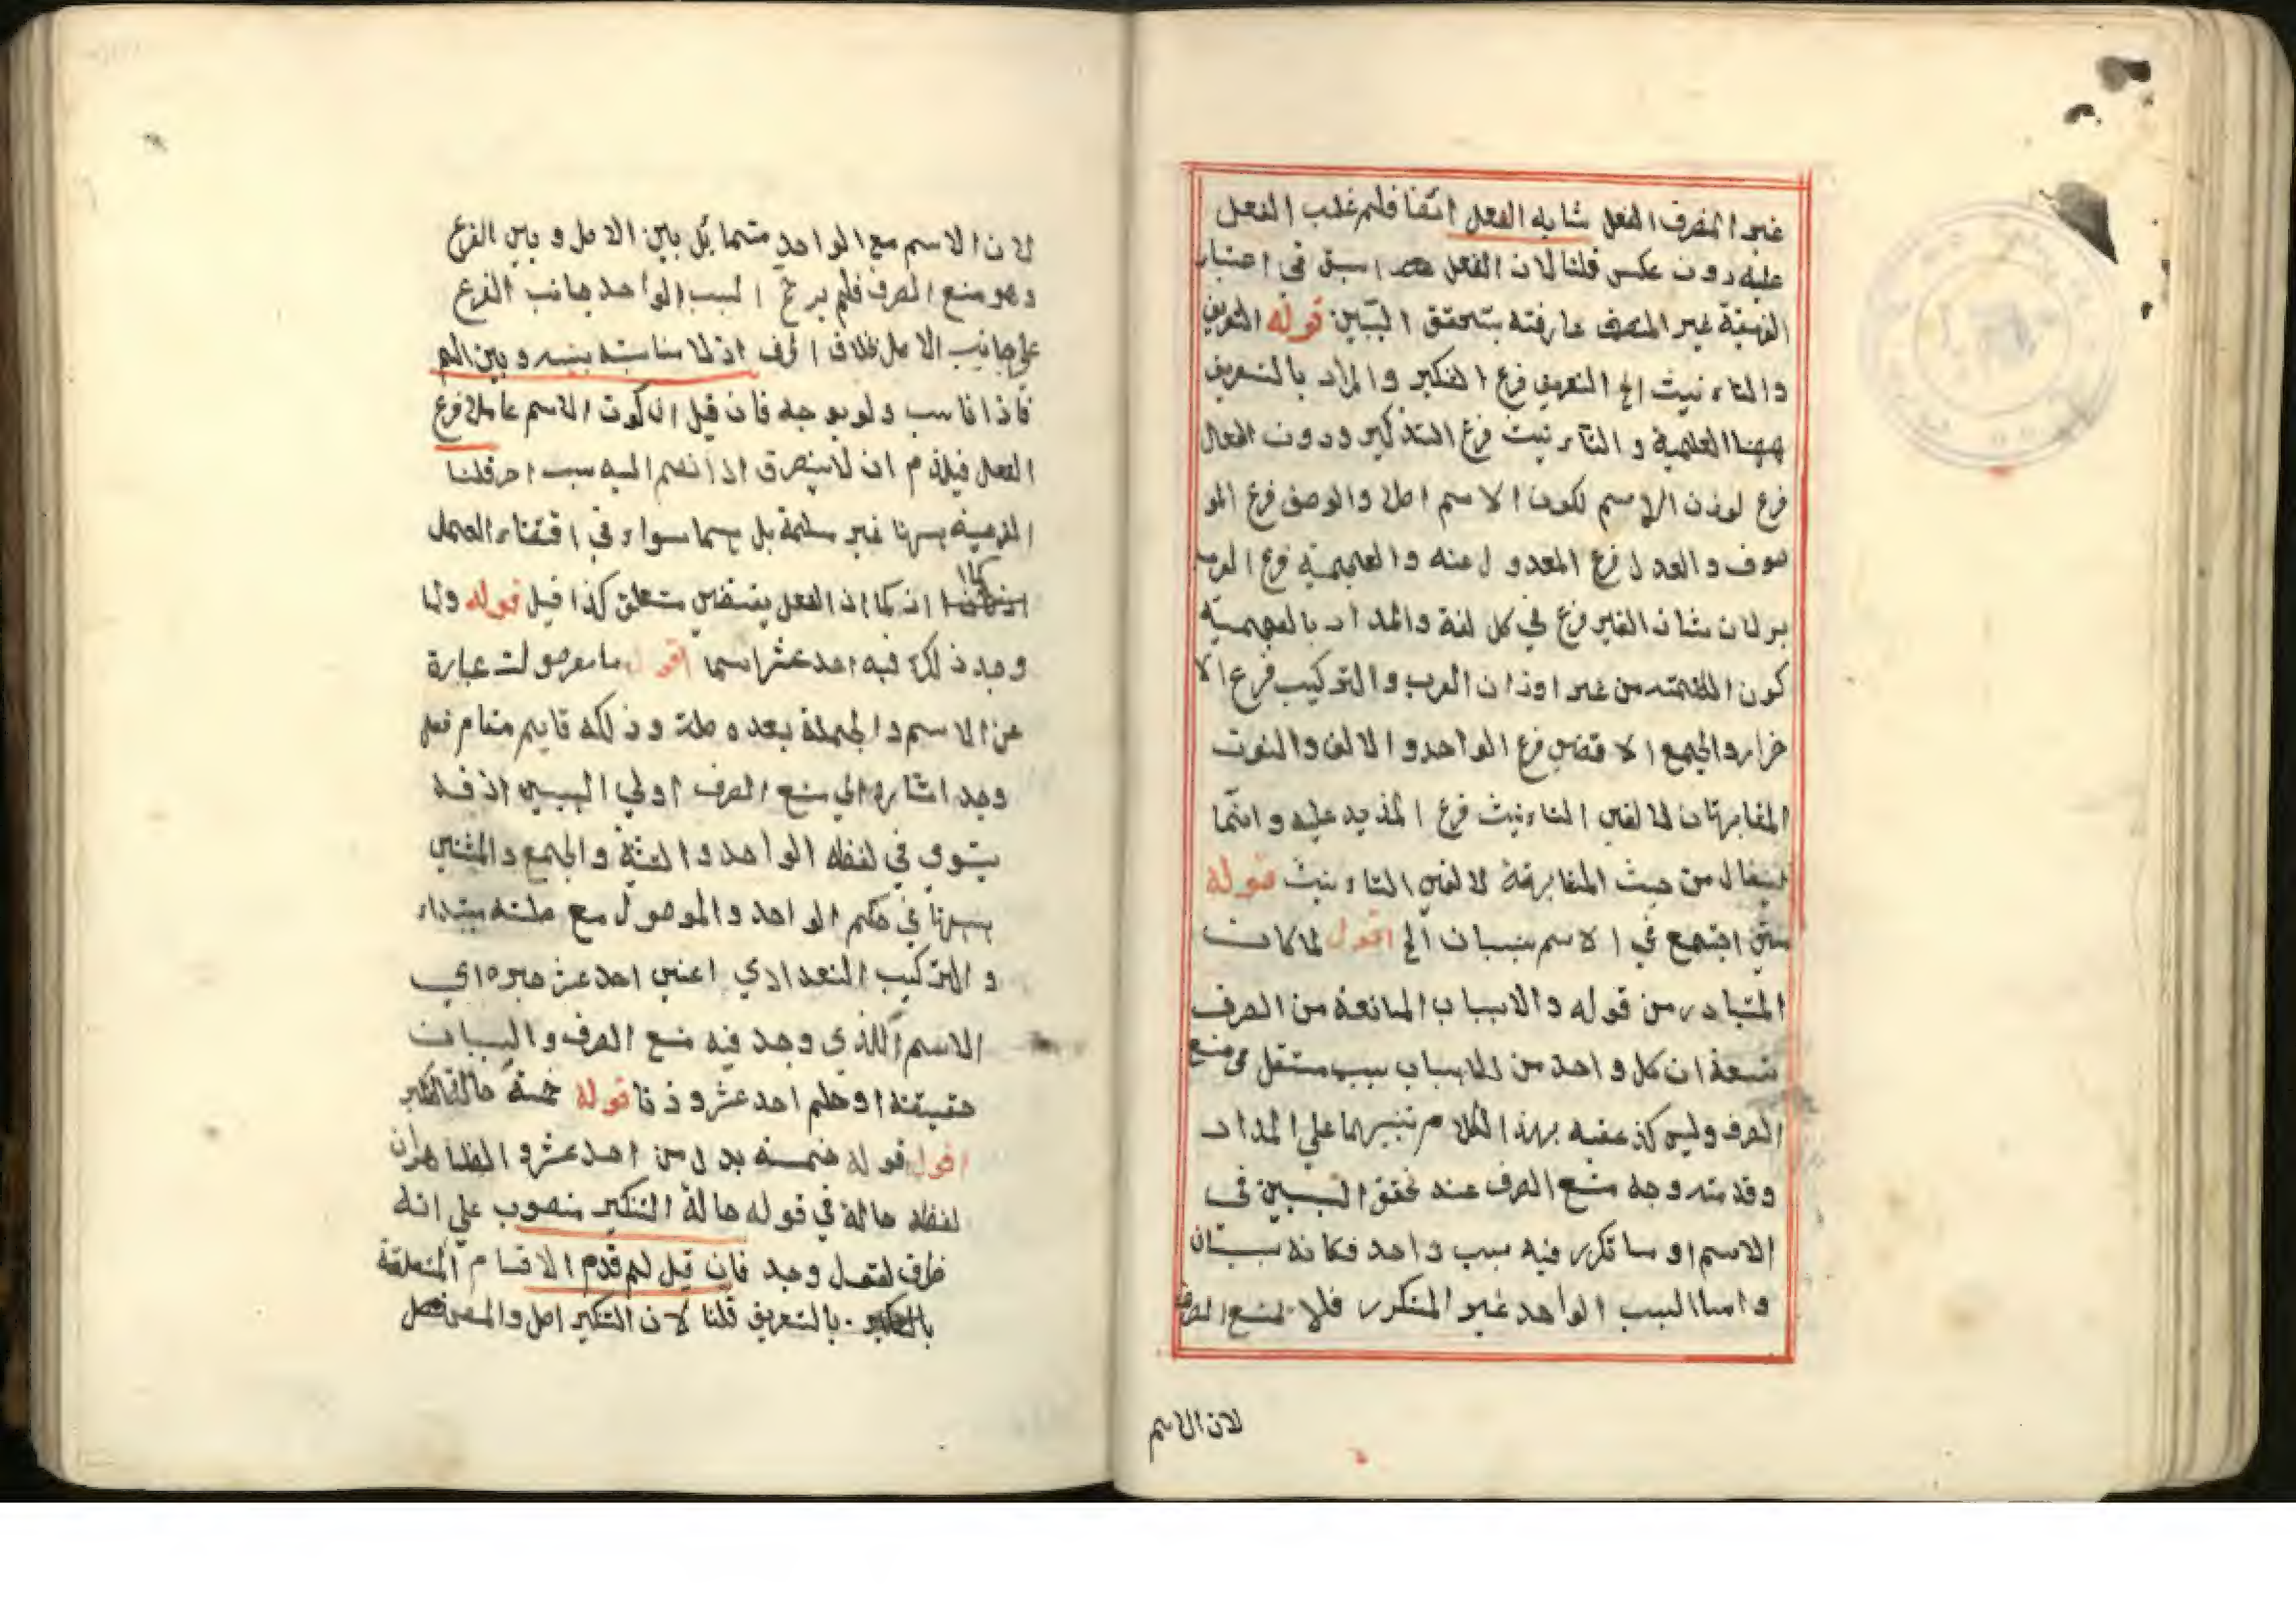 غير المنصرف الفعل شابه الفعل ايضا فلم غلب الفعل
عليه دون عكس قلنا لان الفعل اسبق في اعتبار
الفرعية غير المنصف عارفته بتحقق السببين قوله التعريف
والتاء نيث الخ التعريف فرع التنكير والمراد بالتعريف
ههنا العلمية و التاء نيث فرع التذكير ووزن الفعال
فرع لوزن الاسم لكون الاسم اصلا والوصف فرع المو
صوف والعدل فرع المعدول عنه والعجمية فرع العرب
بر لان شان الغير فرع في كل لغة والمداد بالعجمية
كون الكلمته من غير اوزان العرب والتركيب فرع الا
فراد والجمع الاقصى فرع الواحد و الالف والنون
المضارعتان لالفي التاء نيث فرع المزيد عليه وانما
من حيث المضارعة لالفي التاء نيث قوله
متى اجتمع في الاسم سببان الخ اقول لما كان
المتبادر من قوله والاسباب المانعة من الصرف
تسعة ان كل واحد من الاسباب سبب مستقل في منع
الصرف وليس كذ عقبه بهذا الكلام تنبيها علي المداد
وقد مته وجه منع الصرف عند تحقق السببين في
الاسم او ما تكرر فيه سبب واحد فكانه سببان
واما السبب الواحد غير المتكرر فلا تمنع الصرف
لان الاسم
لان الاسم مع الواحد متما يل بين الاصل و بين الفرع
وهو منع الصرف فلم يرجح السبب الواحد جانب الفرع
علي جانب الاصل اذ لا مناسبته بينه و بين الم
فاذا ناسب ولو بوجه فان قيل ان كون الاسم عاملا فرع
الفعل فيلزم ان لا ينصرف اذا انضم اليه سبب اخر قلنا
الفرعية ههنا غير مسلمة بل هما سواء في اقتضاء العمل
كما ان الفعل يقتضي متعلق كذا قيل قوله ولما
وجد ذلك فيه احد عشر اسما اقول ما موصولت عبارة
عن الاسم والجملة بعده صلة وذلك قايم مقام فعل
وجد اشاره الي منع الصرف او لي السببين اذ قد
يتوي في لفظه الواحد والتثية والجمع والمثني
ههنا في حكم الواحد والموصول مع صلته مبتداء
و التركيب التعدادي اعني احد عشر خبره اي
الاسم الذي وجد فيه منع الصرف والسببان
حقيقته او حكم احد عشر وزنا قوله خمسة حالة التنكير
اقول قوله خمسه بدل من احد عشر و الظاهر ان
لفظه حالة في قوله حالة التنكير منصوب علي انه
ظرف لفعل وجد فان قيل لم قدم الاقسام المتعلقة
بالتعريف قلنا لان التنكير اصل والمص فصل